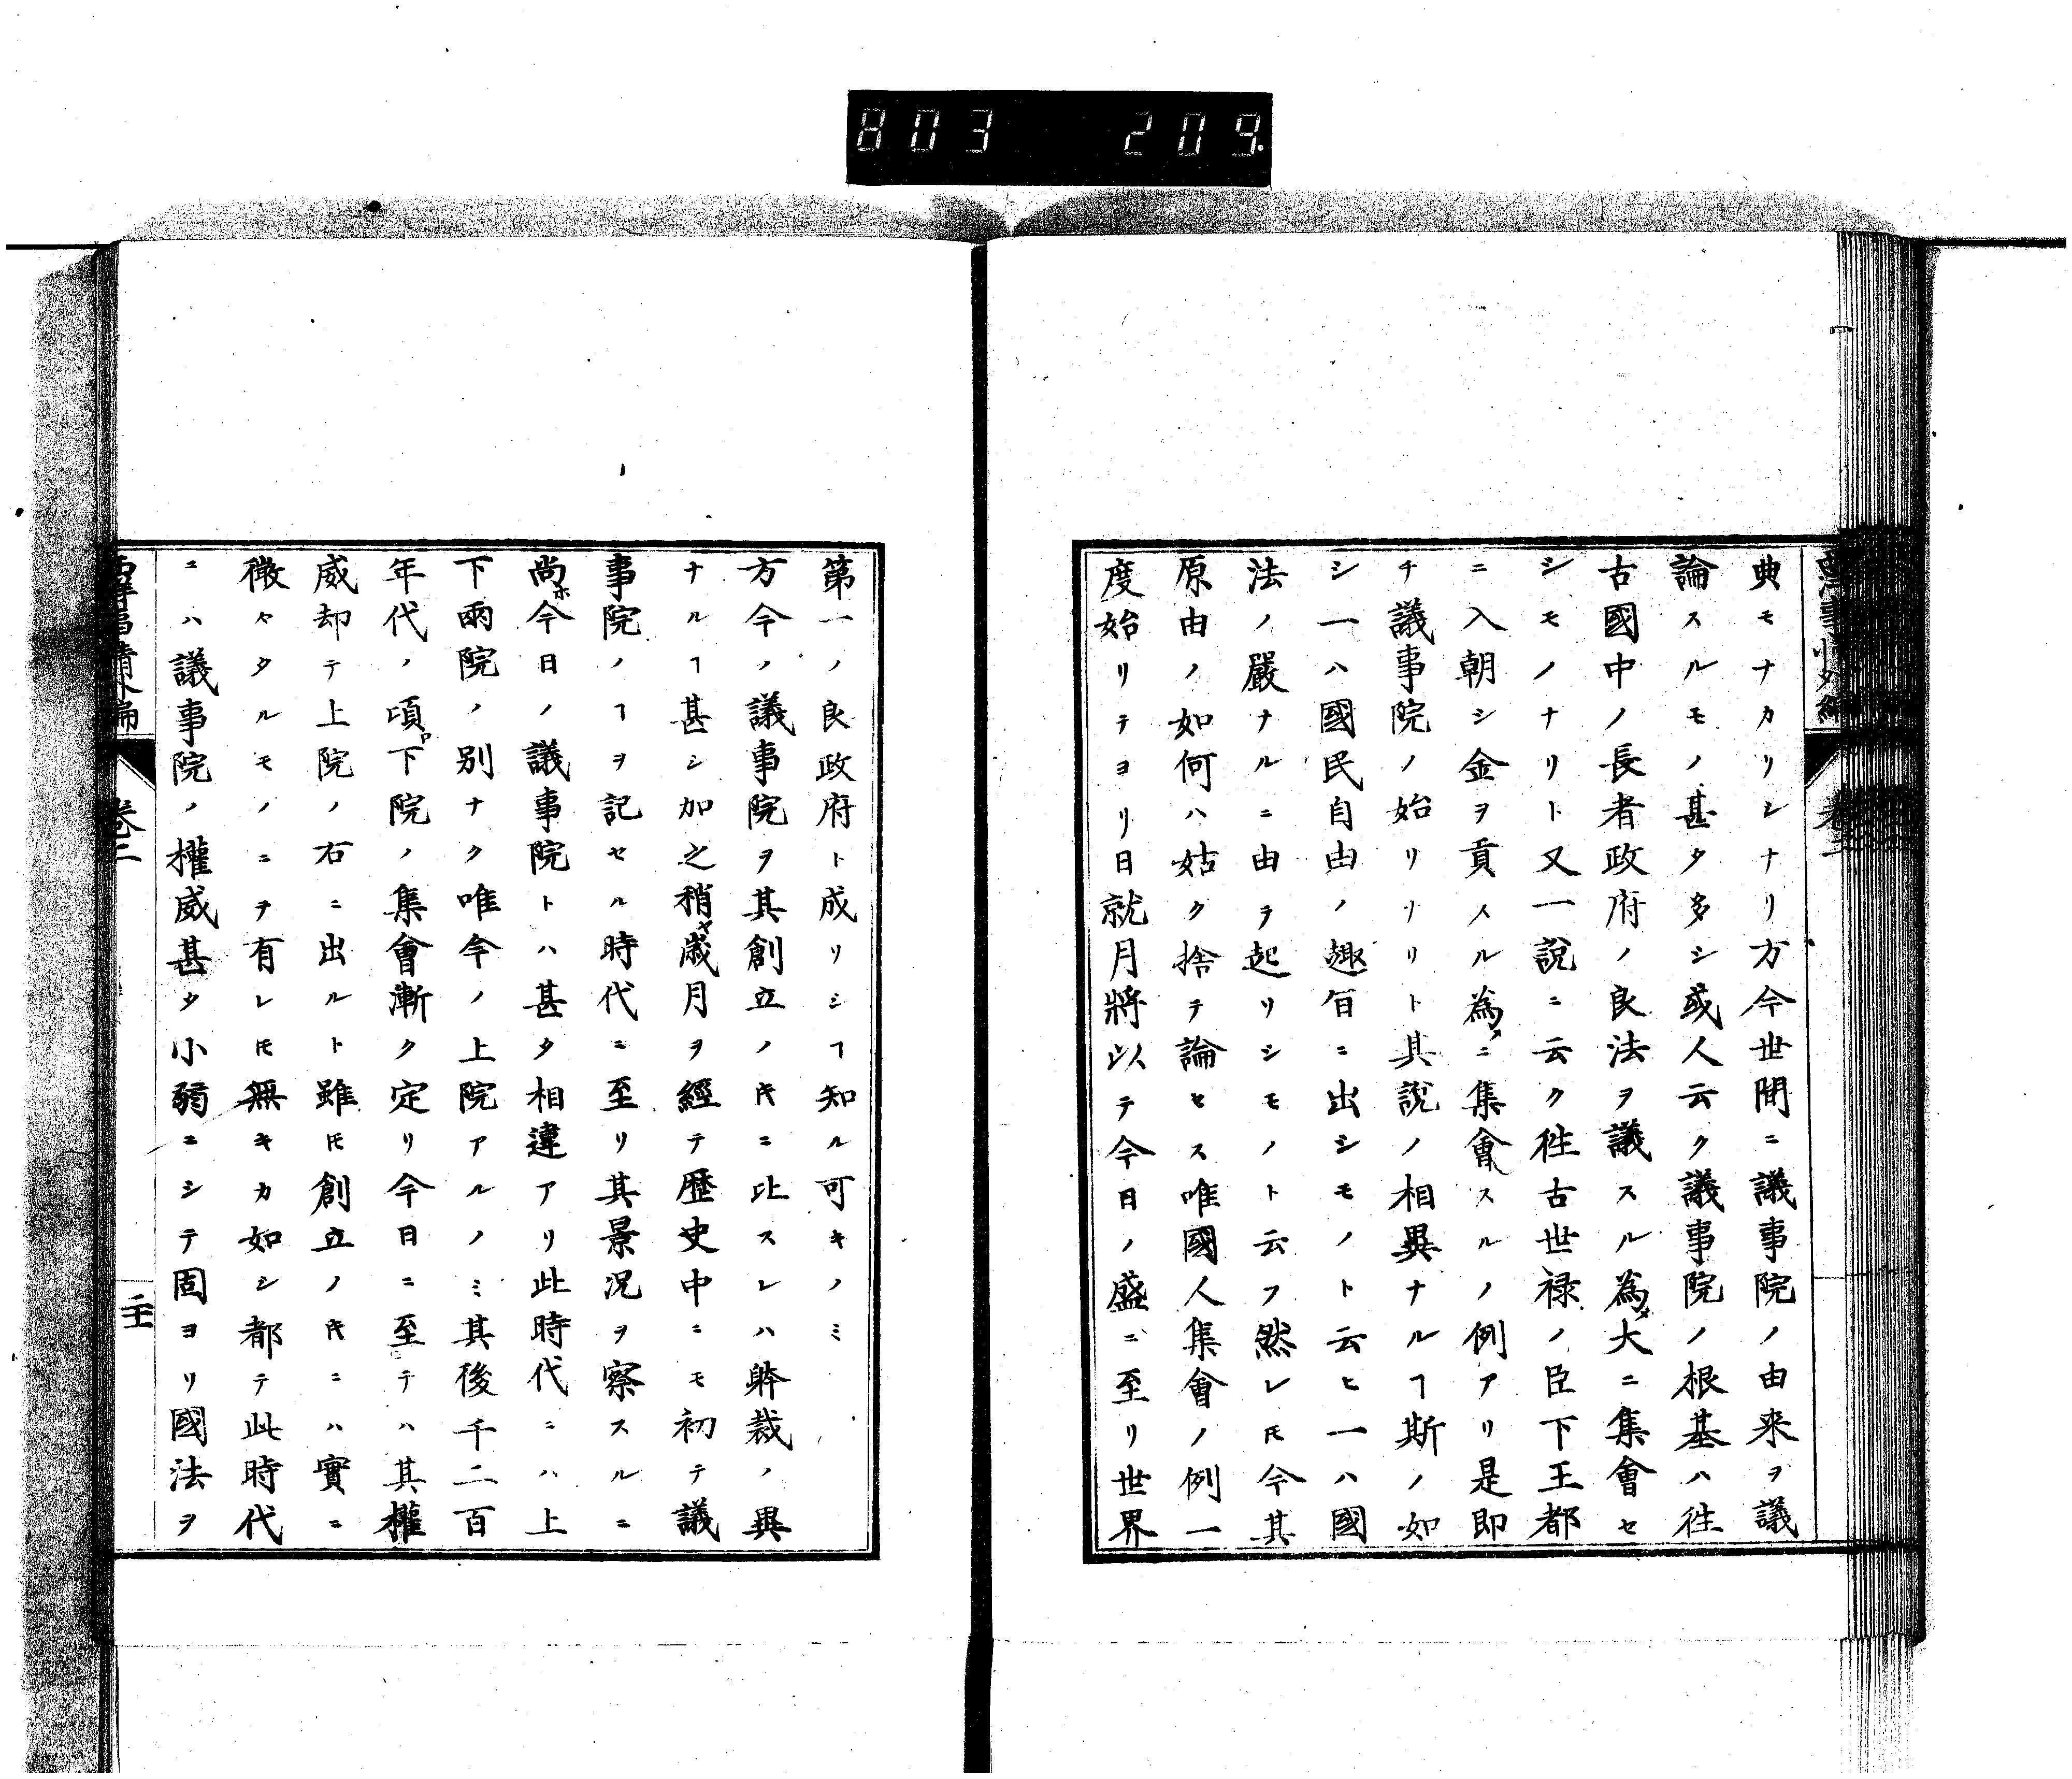 803 209.
典モナカリシナリ方今世間ニ議事院ノ由来ヲ議
論スルモノ甚タ多シ或人云ク議事院ノ根基ハ徃
古國中ノ長者政府ノ良法ヲ議スル為メ大ニ集會セ
シモノナリト又一説ニ云ク徃古世禄ノ臣下王都
ニ入朝シ金ヲ貢スル為メニ集會スルノ例アリ是即
チ議事院ノ始リナリト其説ノ相異ナルヿ斯ノ如
シ一ハ國民自由ノ趣旨ニ出シモノト云ヒ一ハ國
法ノ嚴ナルニ由テ起リシモノト云フ然レ𪜈今其
原由ノ如何ハ姑ク捨テ論セス唯國人集會ノ例一
度始リテヨリ日就月將以テ今日ノ盛ニ至リ世界
西洋事情外編
卷二
第一ノ良政府ト成リシヿ知ル可キノミ
方今ノ議事院ヲ其創立ノキニ比スレハ躰裁ノ異
ナルヿ甚シ加之稍ヤ歳月ヲ經テ歴史中ニモ初テ議
事院ノヿヲ記セル時代ニ至リ其景况ヲ察スルニ
尚ホ今日ノ議事院トハ甚タ相違アリ此時代ニハ上
下兩院ノ別ナク唯今ノ上院アルノミ其後千二百
年代ノ頃ロ下院ノ集會漸ク定リ今日ニ至テハ其權
威却テ上院ノ右ニ出ルト雖𪜈創立ノキニハ實ニ
微々タルモノニテ有レ𪜈無キカ如シ都テ此時代
ニハ議事院ノ權威甚タ小弱ニシテ固ヨリ國法ヲ
西洋事情外編
卷二